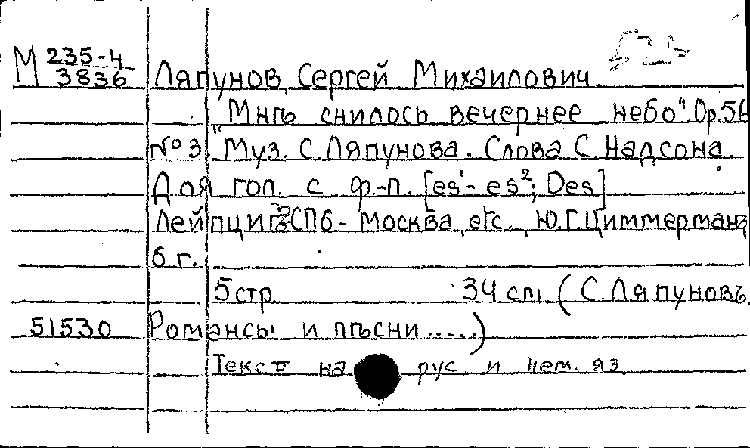 М 235-4
3836 Ляпунов, Сергей Михаилович
"Мнѣ снилось вечернее небо". Op. 56
№ 3. Муз. С. Ляпунова. Слова С. Надсона.
Для гол. с ф-п. [es¹-es²; Des]
Лейпциг, СПб- Москва, etc, Ю.Г. Циммерманъ,
б г.
5 стр 34 см. (С Ляпуновъ.
51530 Романсы и пѣсни .....)
Текст на рус и нем. яз